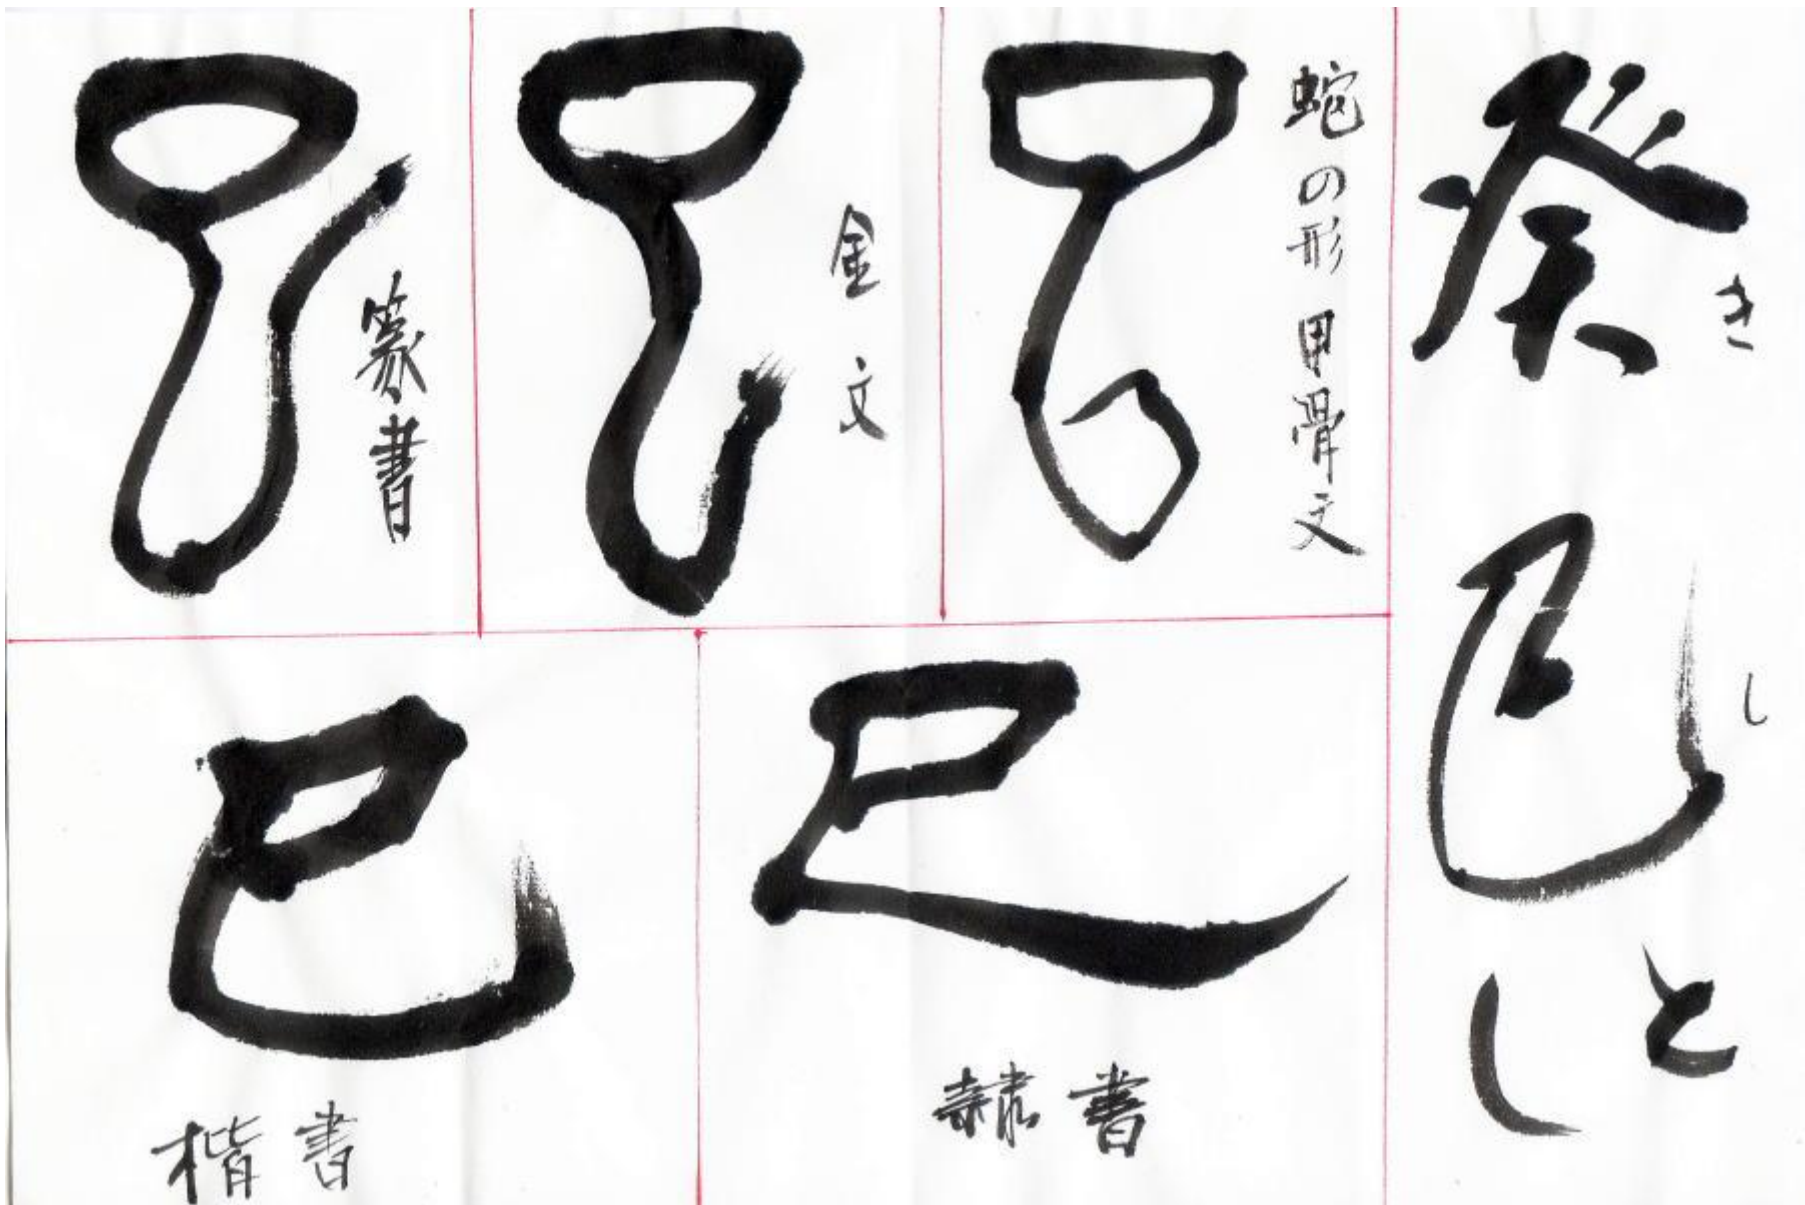 癸巳とし
き し
蛇の形 甲骨文
巳
金文
巳
篆書
巳
隷書
巳
楷書
巳